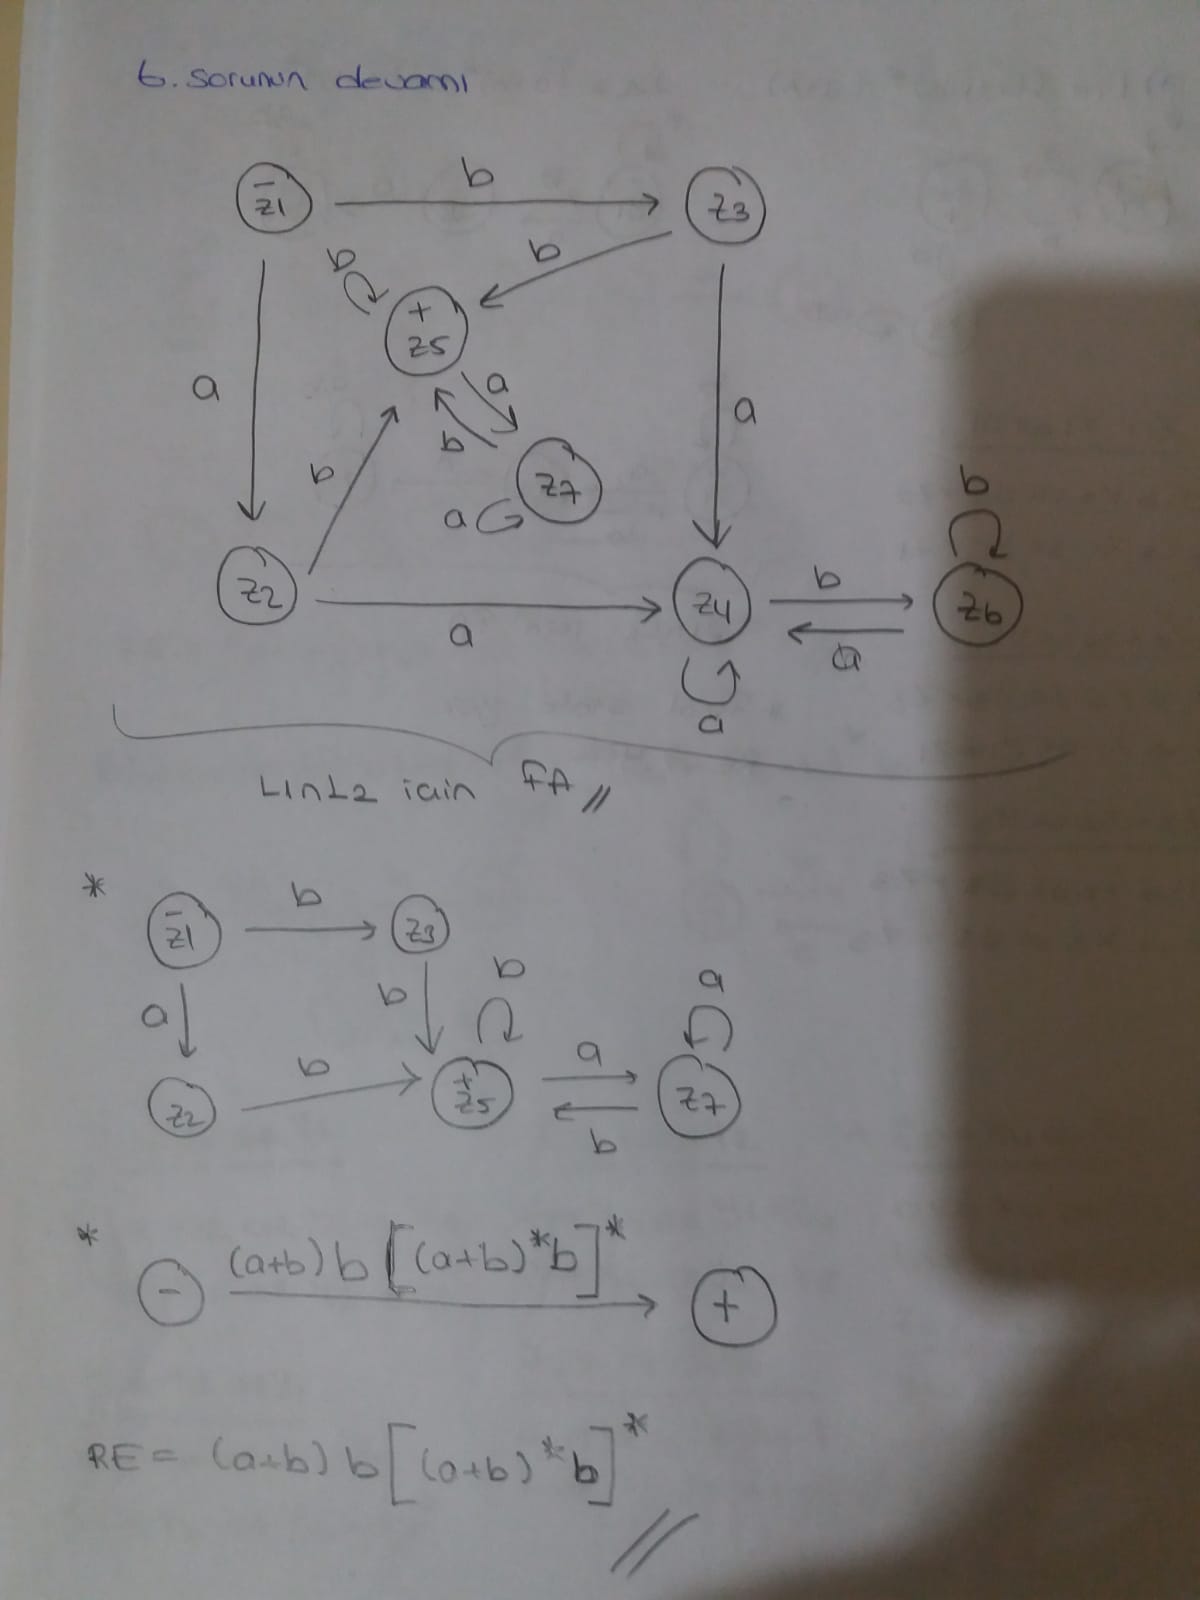 6. sorunun devamı
z1 b z3
b b
+
z5
a a a
b b
z7
a b
z2 z4 b z6
a a
a
L1∩L2 için FA //
* z1 b z3
a b b a
z2 b + z5 a z7
b
* - (a+b) b [(a+b)*b]* +
RE = (a+b) b [(a+b)*b]*
//